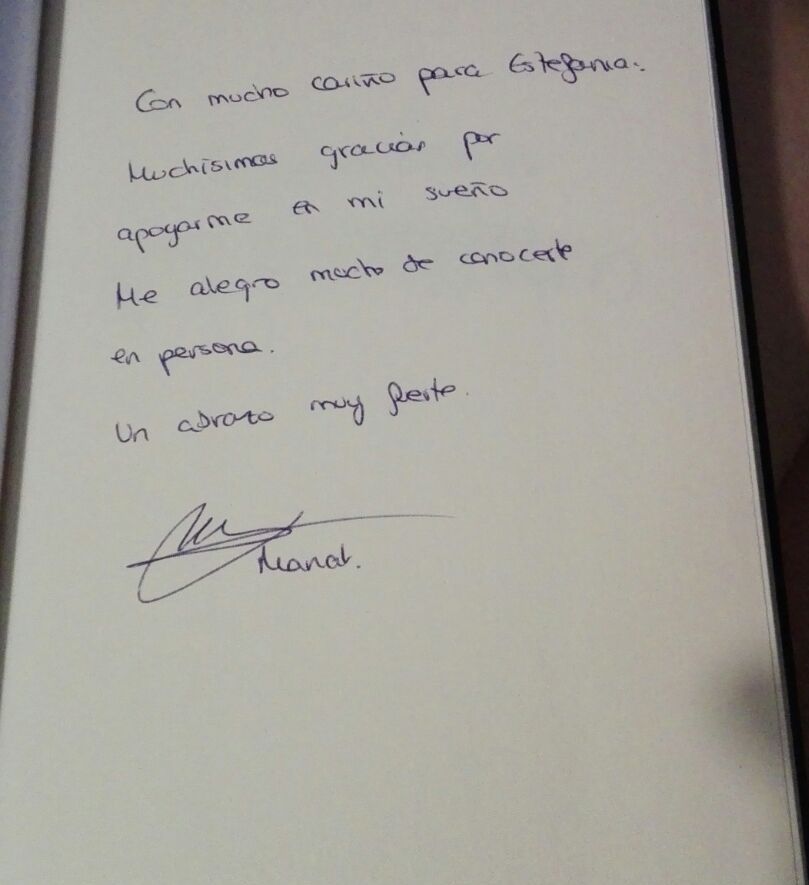 Con mucho cariño para Estefania:
Muchísimas gracias por
apoyarme en mi sueño
Me alegro mucho de conocerte
en persona.
Un abrazo muy fuerte.
Manal.